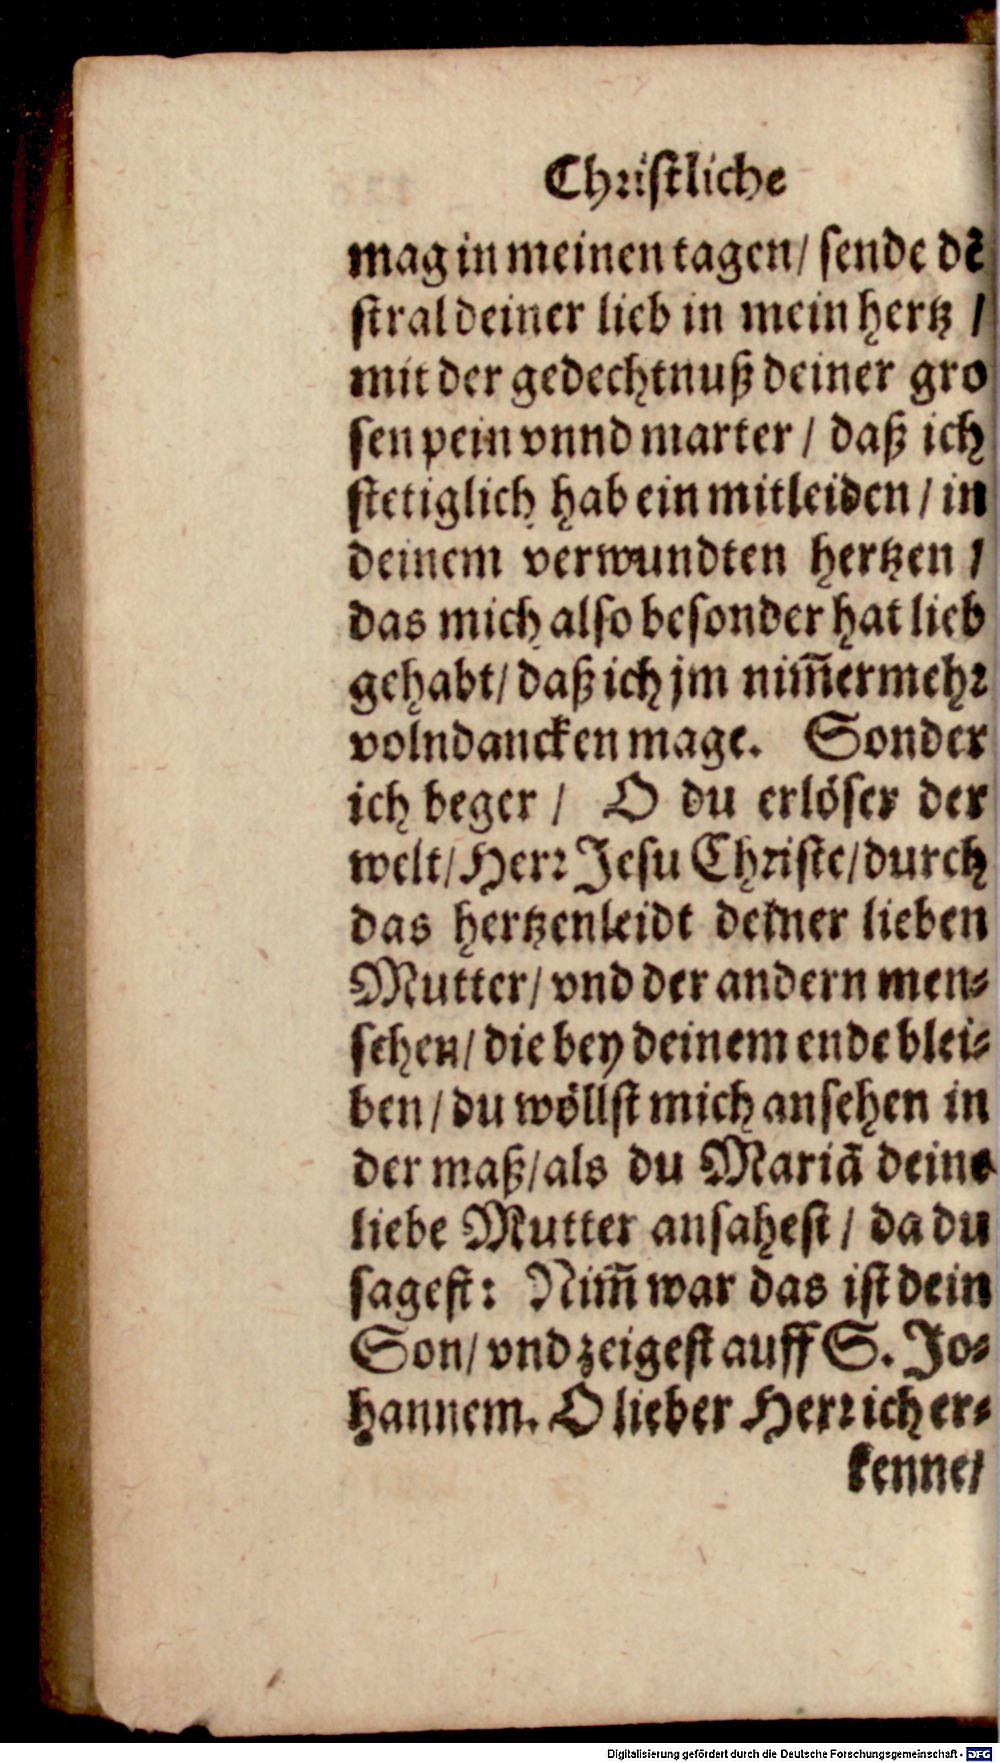 Christliche
mag in meinen tagen/ sende dē
stral deiner lieb in mein hertz /
mit der gedechtnuß deiner gro
sen pein vnnd marter / daß ich
stetiglich hab ein mitleiden / in
deinem verwundten hertzen /
das mich also besonder hat lieb
gehabt/ daß ich jm nim̄ermehr
volndancken mage. Sonder
ich beger / O du erlöser der
welt/ Herr Jesu Christe/ durch
das hertzenleidt deiner lieben
Mutter/ vnd der andern men-
schen/ die bey deinem ende blei-
ben/ du wöllst mich ansehen in
der maß/ als du Mariā deine
liebe Mutter ansahest / da du
sagest: Nim̄ war das ist dein
Son/ vnd zeigest auff S. Jo-
hannem. O lieber Herr ich er-
kenne/
Digitalisierung gefördert durch die Deutsche Forschungsgemeinschaft - DFG